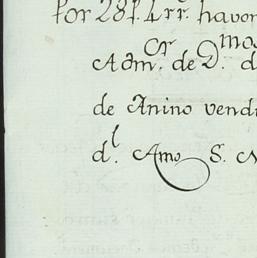 Por 28f. 4rr. havon
Adm.or de D.n mos d
de Anino vendi
d.l Amo S. N